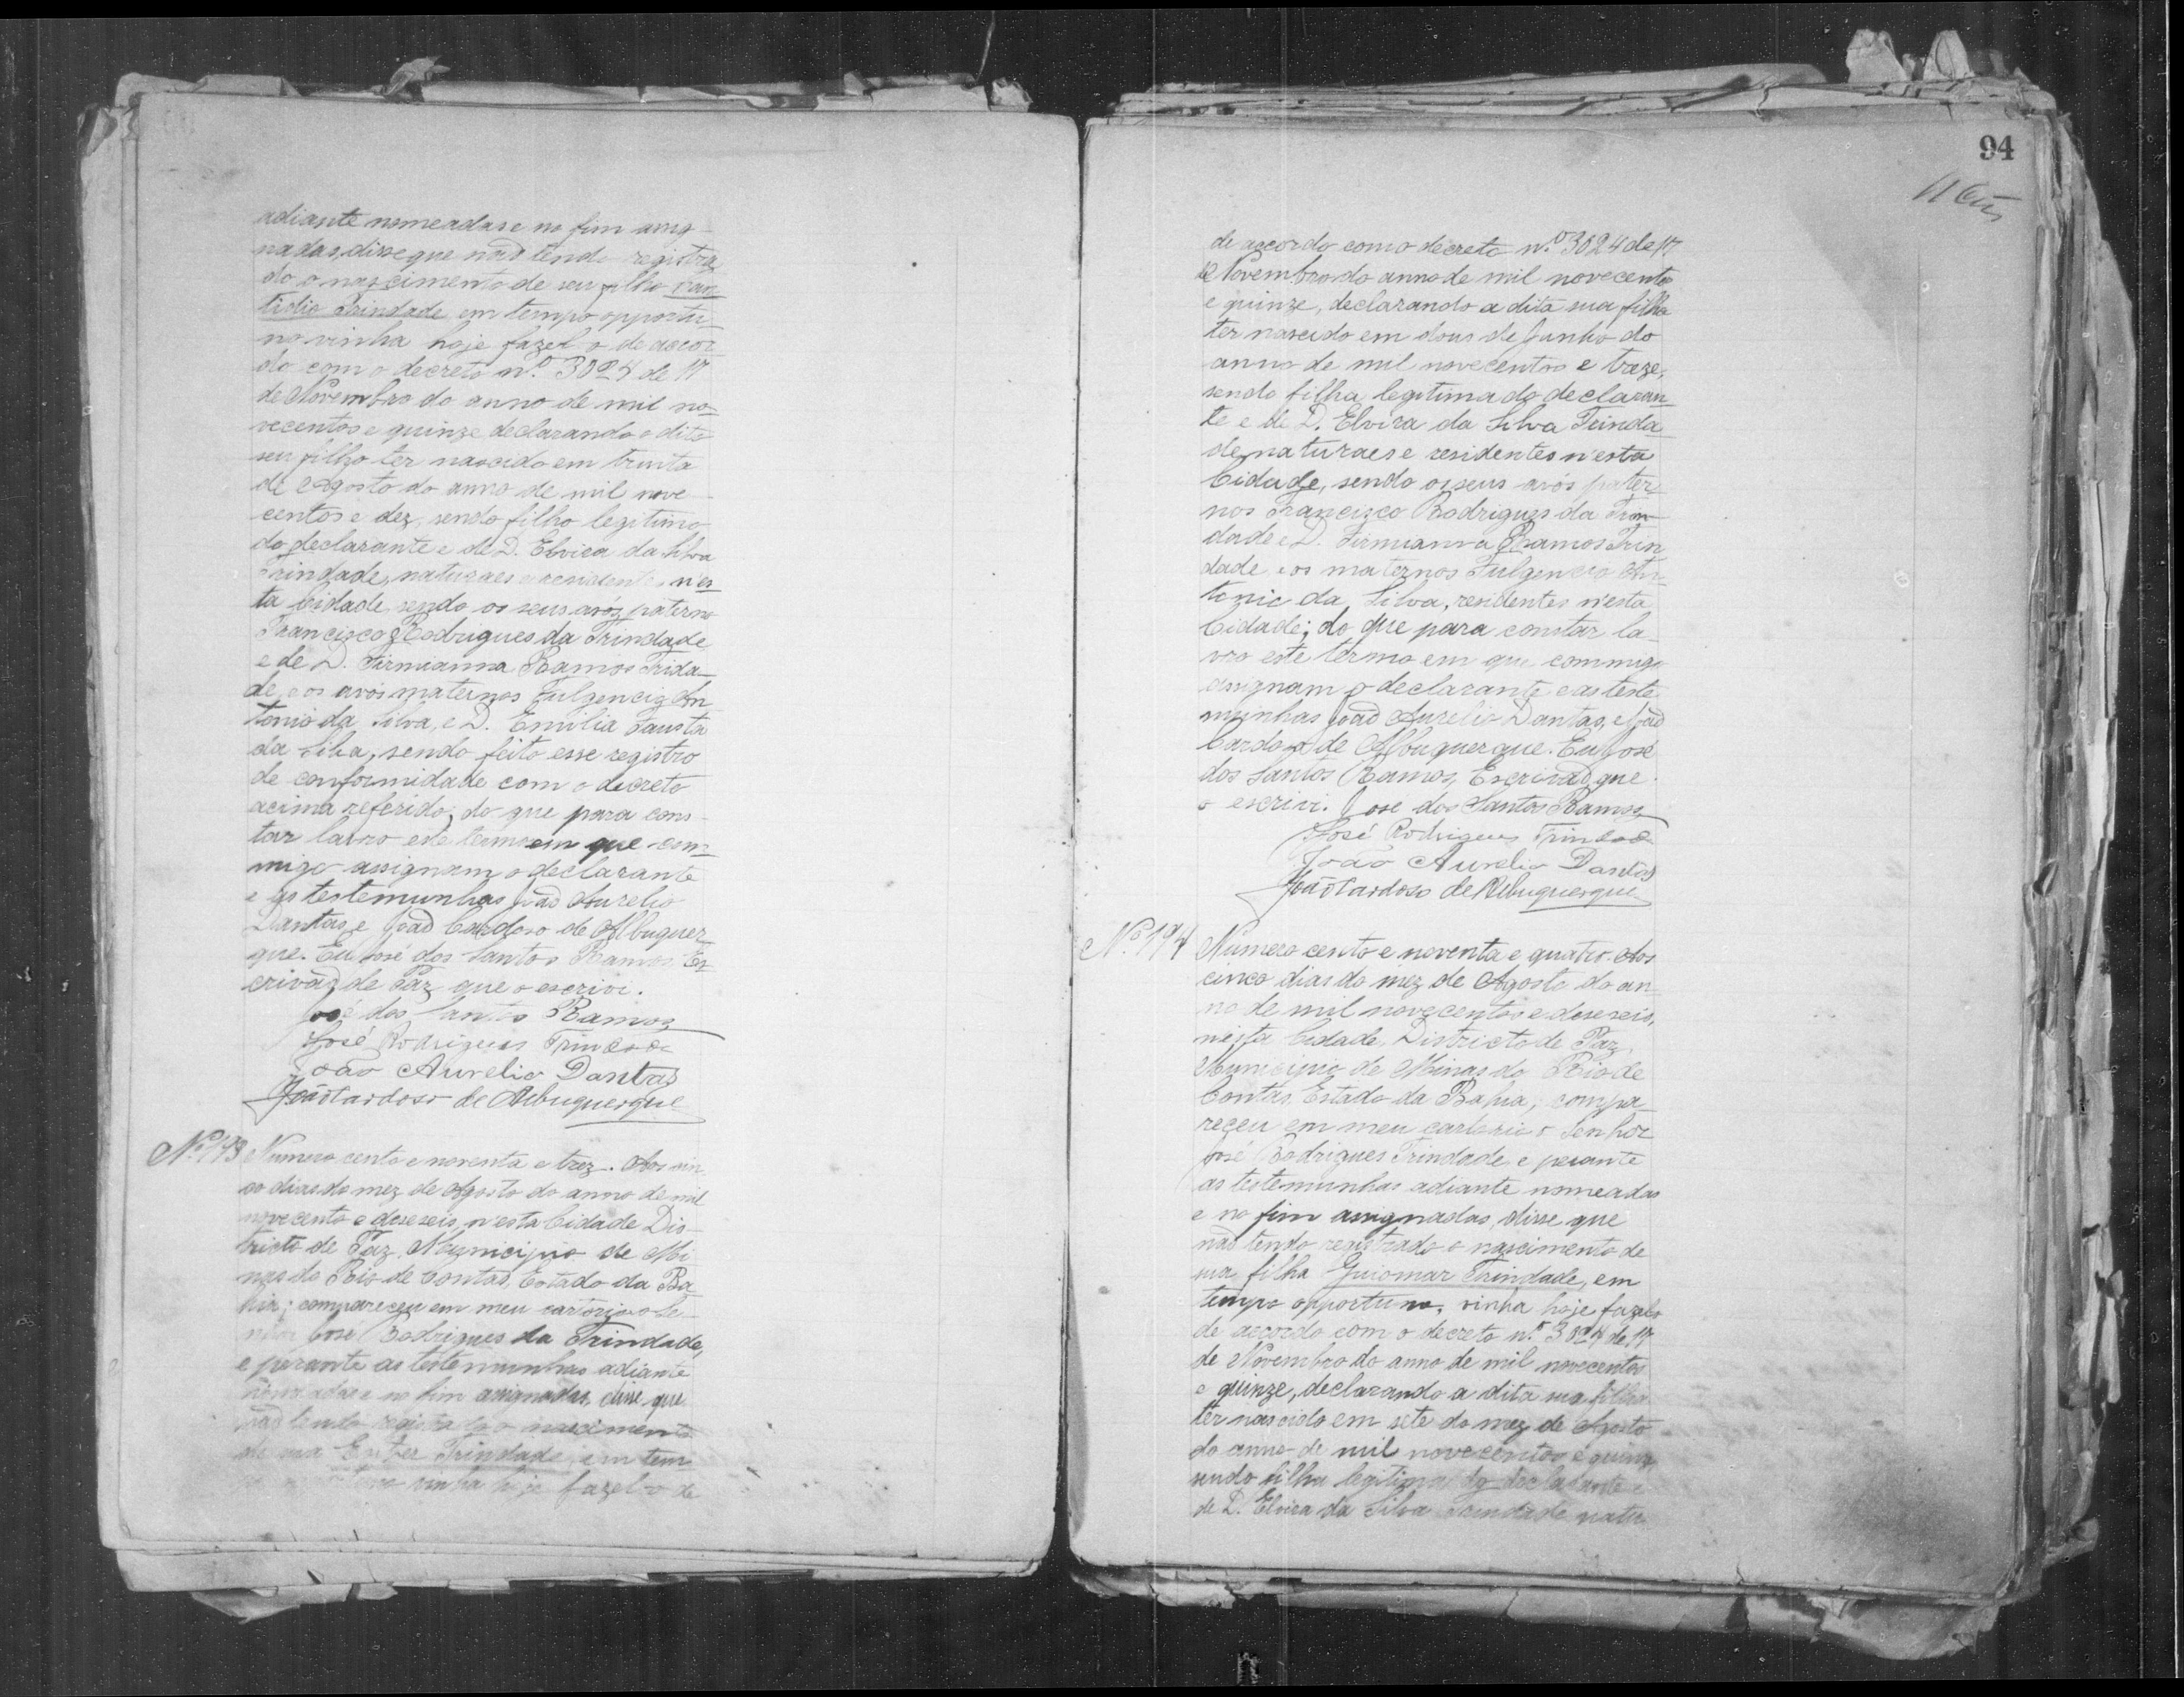 adiante nomeadas e no fim assig-
nadas, disse que não tendo registra
do o nascimento de seu filho
tidio Trindade em tempo opportu-
no vinha hoje fazel-o de accor
do com o decreto n.º 3024 de 17
de Novembro do anno de mil no-
vecentos e quinze declarando o dito
seu filho ter nascido em trinta
de Agosto do anno de mil nove
centos e dez, sendo filho legitimo
do declarante e de D. Elvira da Silva
Trindade, naturaes e residentes n'es
ta Cidade, sendo os seus avós paterno
Francizco Rodrigues da Trindade
e de D. Firmianna Ramos Trida-
de, e os avós maternos Fulgencio An
tonio da Silva, e D. Emilia Fausta
da Silva, sendo feito esse registro
de conformidade com o decreto
acima referido; do que para cons-
tar lavro este termo em que com-
migo assignam o declarante
e as testemunhas João Aurelio
Dantas, e João Cardoso de Albuquer-
que. Eu José dos Santos Ramos Es-
crivão de Paz que o escrivi.
José dos Santos Ramos
José Rodrigues Trindade
João Aurelio Dantas
João Cardoso de Albuquerque
Nº 193 Numero cento e noventa e trez. Aos cin
co dias do mez de Agosto do anno de mil
novecento e deseseis, n'esta Cidade Dis-
tricto de Paz, Municipio de Mi
nas do Rio de Contas, Estado da Ba
hia; compareceu em meu cartorio o Se-
nhor José Rodrigues da Trindade,
e perante as testemunhas adiante
nomeadas e no fim assignadas, disse que
não tendo registrado o nascimento
de sua Trindade em tem
vinha hoje fazel-o de
94
de accordo com o decreto n.º 3024 de 17
de Novembro do anno de mil novecento
e quinze, declarando a dita sua filha
ter nascido em dous de Junho do
anno de mil novecentos e treze,
sendo filha legitima do declaran
te e de D. Elvira da Silva Trinda-
de, naturaes e residentes n'esta
Cidade, sendo os seus avós pater-
nos Francizco Rodrigues da Trin-
dade e D. Firmianna Ramos Trin
dade, e os maternos Fulgencio An-
tonio da Silva, residentes n'esta
Cidade; do que para constar la-
vro este termo em que commigo
assignam o declarante e as teste-
munhas João Aurelio Dantas, e João
Cardoso de Albuquerque. Eu José
dos Santos Ramos, Escrivão que
o escrivi. José dos Santos Ramos
José Rodrigues Trindade
João Aurelio Dantas
João Cardoso de Albuquerque
Nº 194 Numero cento e noventa e quatro. Aos
cinco dias do mez de Agosto do an-
no de mil novecentos e deseseis,
n'esta Cidade, Districto de Paz,
Municipio de Minas do Rio de
Contas, Estado da Bahia, compa-
receu em meu cartorio o Senhor
José Rodrigues Trindade, e perante
as testemunhas adiante nomeadas
e no fim assignadas, disse que
não tendo registrado o nascimento de
sua filha Guiomar Trindade, em
tempo opportuno, vinha hoje fazel-o
de accordo com o decreto n.º 3024 de 17
de Novembro do anno de mil novecentos
e quinze, declarando a dita sua filha
ter nascido em sete do mez de Agosto
do anno de mil novecentos e quinze
sendo filha legitima do declarante e
de D. Elvira da Silva Trindade natu-